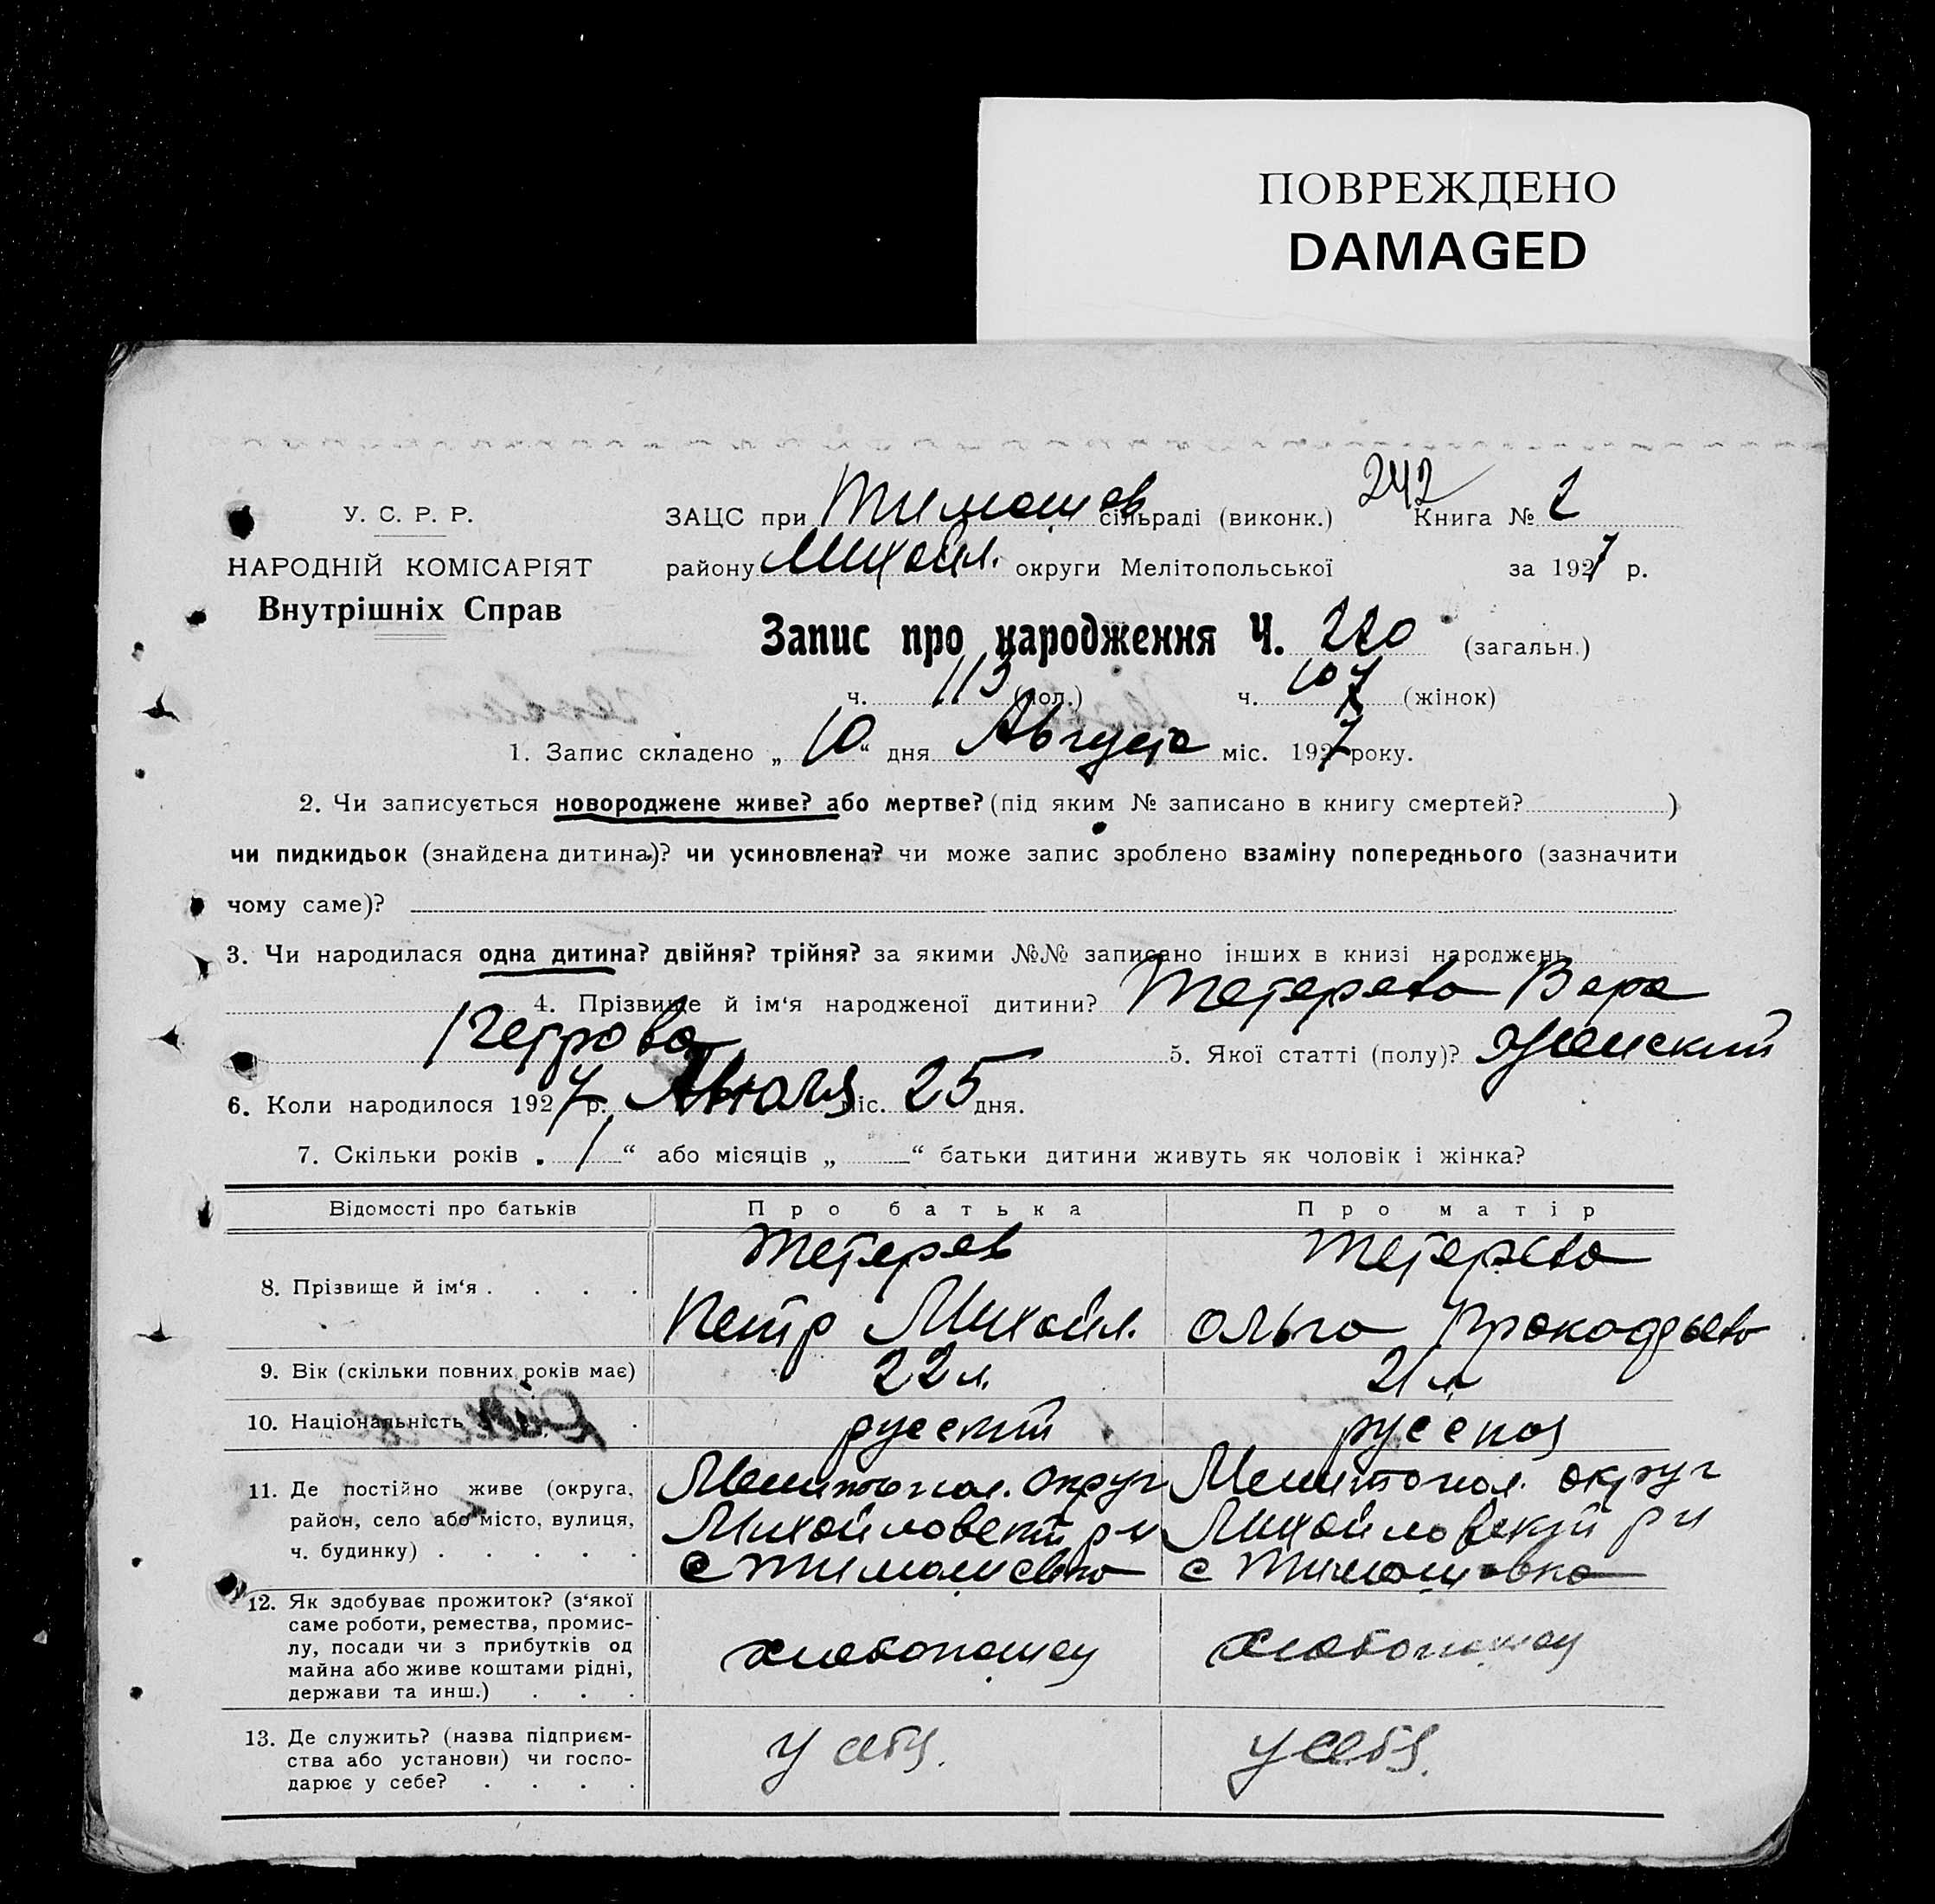 ПОВРЕЖДЕНО
DAMAGED
242
У. С. Р. Р.
НАРОДНІЙ КОМІСАРІЯТ
Внутрішніх Справ
ЗАЦС при Тимошев сільраді (виконк.) Книга № 2
району Михайл. округи Мелітопольської за 1927 р.
Запис про народження Ч. 220 (загальн.)
ч. 113 (чол.) ч. 107 (жінок)
1. Запис складено „ 10 “ дня Августа міс. 1927 року.
2. Чи записується новороджене живе? або мертве? (під яким № записано в книгу смертей? )
чи пидкидьок (знайдена дитина)? чи усиновлена? чи може запис зроблено взаміну попереднього (зазначити
чому саме)?
3. Чи народилася одна дитина? двійня? трійня? за якими №№ записано інших в книзі народжень
4. Прізвище й ім‘я народженої дитини? Тетерева Вера
Петрова 5. Якої статті (полу)? Женский
6. Коли народилося 1927 р. Июля міс. 25 дня.
7. Скільки років „ 1 “ або місяців „ “ батьки дитини живуть як чоловік і жінка?
Відомості про батьків Про батька Про матір
8. Прізвище й ім‘я . . . .
Тетерев
Петр Михайл.
Тетерева
Ольга
9. Вік (скільки повних років має) 22 л. 21 л
10. Національність русский русская
11. Де постійно живе (округа,
район, село або місто, вулиця,
ч. будинку) . . . . .
Мелитопол. округ
Михайловский р-н
с Тимошевка
Мелитопол. округ
Михайловский р н
с Тимошовка
12. Як здобуває прожиток? (з‘якої
саме роботи, ремества, промис-
лу, посади чи з прибутків од
майна або живе коштами рідні,
держави та инш.) . . .
хлебопашец хлебопашец
13. Де служить? (назва підприєм-
ства або установи) чи госпо-
дарює у себе? . . . .
у себя. у себя.